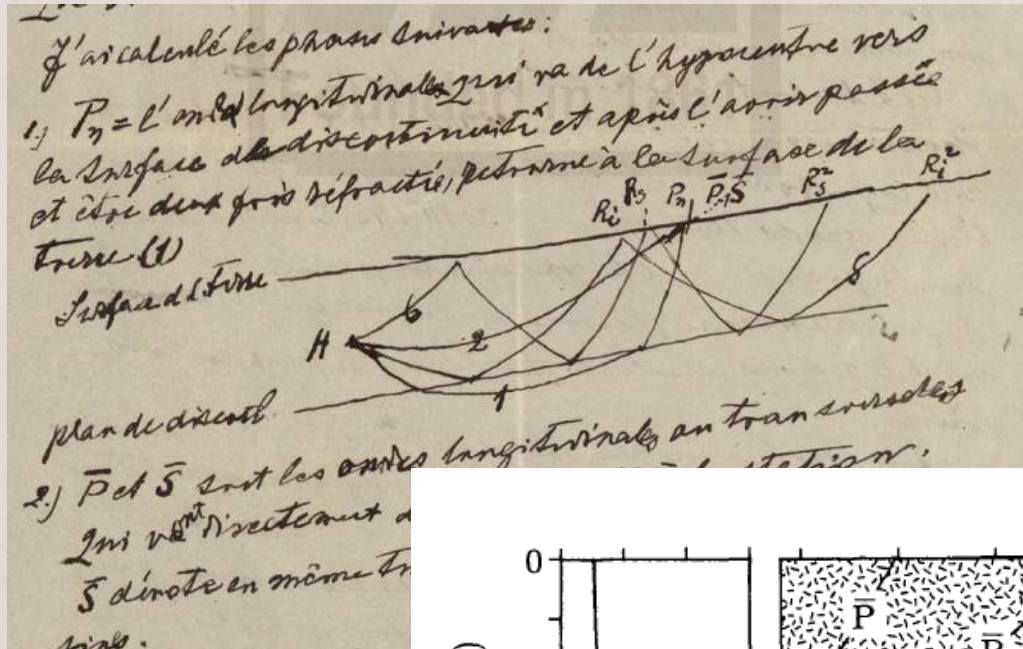 J'ai calculé les phases suivantes:
1.) Pn = l'onde longitudinale qui va de l'hypocentre vers
la surface de discontinuité x et après l'avoir passée
et être deux fois réfractée, retourne à la surface de la
terre (1)
Ri Rs Pn P̄ S̄ Rs² Ri²
Surface d l terre
6
8
H
2
1
plan de discont.
2.) P̄ et S̄ sont les ondes longitudinales ou transversales
qui vont directement
à la station.
S̄ dénote en même
0
P̄
P̄